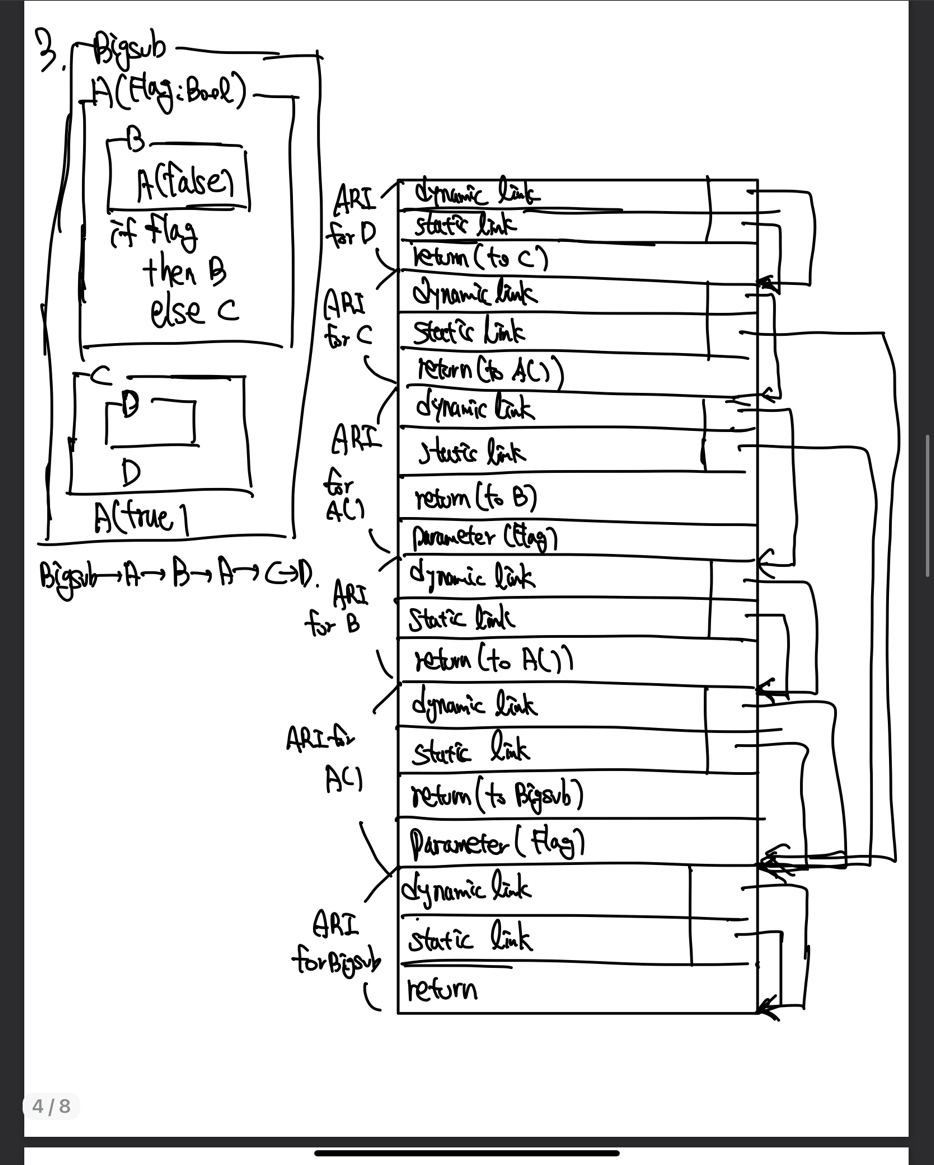 3.
Bigsub
A(Flag:Bool)
B
A(false)
if flag
then B
else C
C
D
D
A(true)
Bigsub→A→B→A→C→D.
ARI
for D
dynamic link
static link
return (to C)
ARI
for C
dynamic link
static link
return (to A())
ARI
for
A()
dynamic link
static link
return (to B)
parameter (flag)
ARI
for B
dynamic link
static link
return (to A())
ARI for
A()
dynamic link
static link
return (to Bigsub)
Parameter (Flag)
ARI
for Bigsub
dynamic link
static link
return
4/8